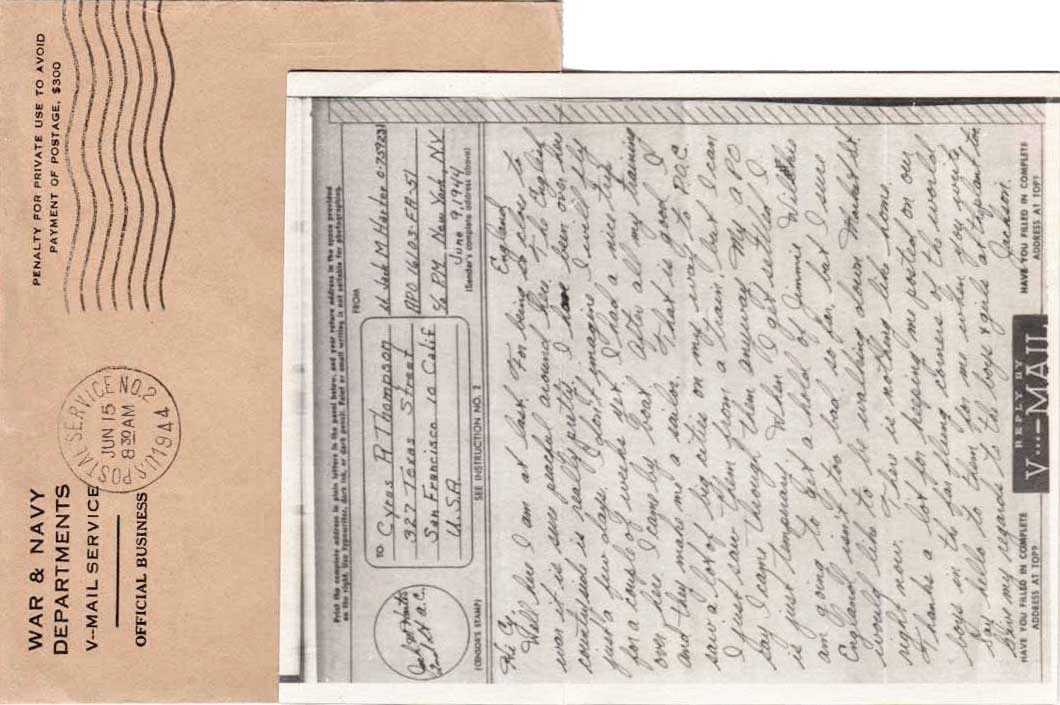 WAR & NAVY
DEPARTMENTS
V--MAIL SERVICE
OFFICIAL BUSINESS
PENALTY FOR PRIVATE USE TO AVOID
PAYMENT OF POSTAGE, $300
U.S. POSTAL SERVICE NO. 2
JUN 15
8 30 AM
1944
Print the complete address in plain letters in the panel below, and your return address in the space provided
on the right. Use typewriter, dark ink, or dark pencil. Faint or small writing is not suitable for photographing.
TO
Cyros R Thompson
327 Texas Street
San Francisco 10 Calif
U.S.A
FROM
Lt Jack M Harter 0-759231
APO 16103-EA-51
% PM New York, NY
June 9, 1944
(Sender's complete address above)
(CENSOR'S STAMP)
SEE INSTRUCTION NO. 2
England
Hi Cy
Well here I am at last. For being so close to
war it is sure peaceful around here. The English
countryside is really pretty. I have been over here
just a few days. I don't imagine I will fly
for a couple of weeks yet. I had a nice trip
over here. I came by boat. After all my training
and they make me a sailor. That is good. I
saw a lot of big cities on my way to P.O.E.
I just saw them from a train, but I can
say I came through them anyway. My PO
is just temporary. When I get settled I
am going to get ahold of Jimmie
England isn't too bad so far, but I sure
would like to be walking down
right now. There is nothing like home.
Thanks a lot for keeping me posted on our
boys in the far flung corners of the world.
Say hello to them for me when you write.
Give my regards to the boys & girls at
Jackson.
HAVE YOU FILLED IN COMPLETE
ADDRESS AT TOP?
REPLY BY
V...-MAIL
HAVE YOU FILLED IN COMPLETE
ADDRESS AT TOP?